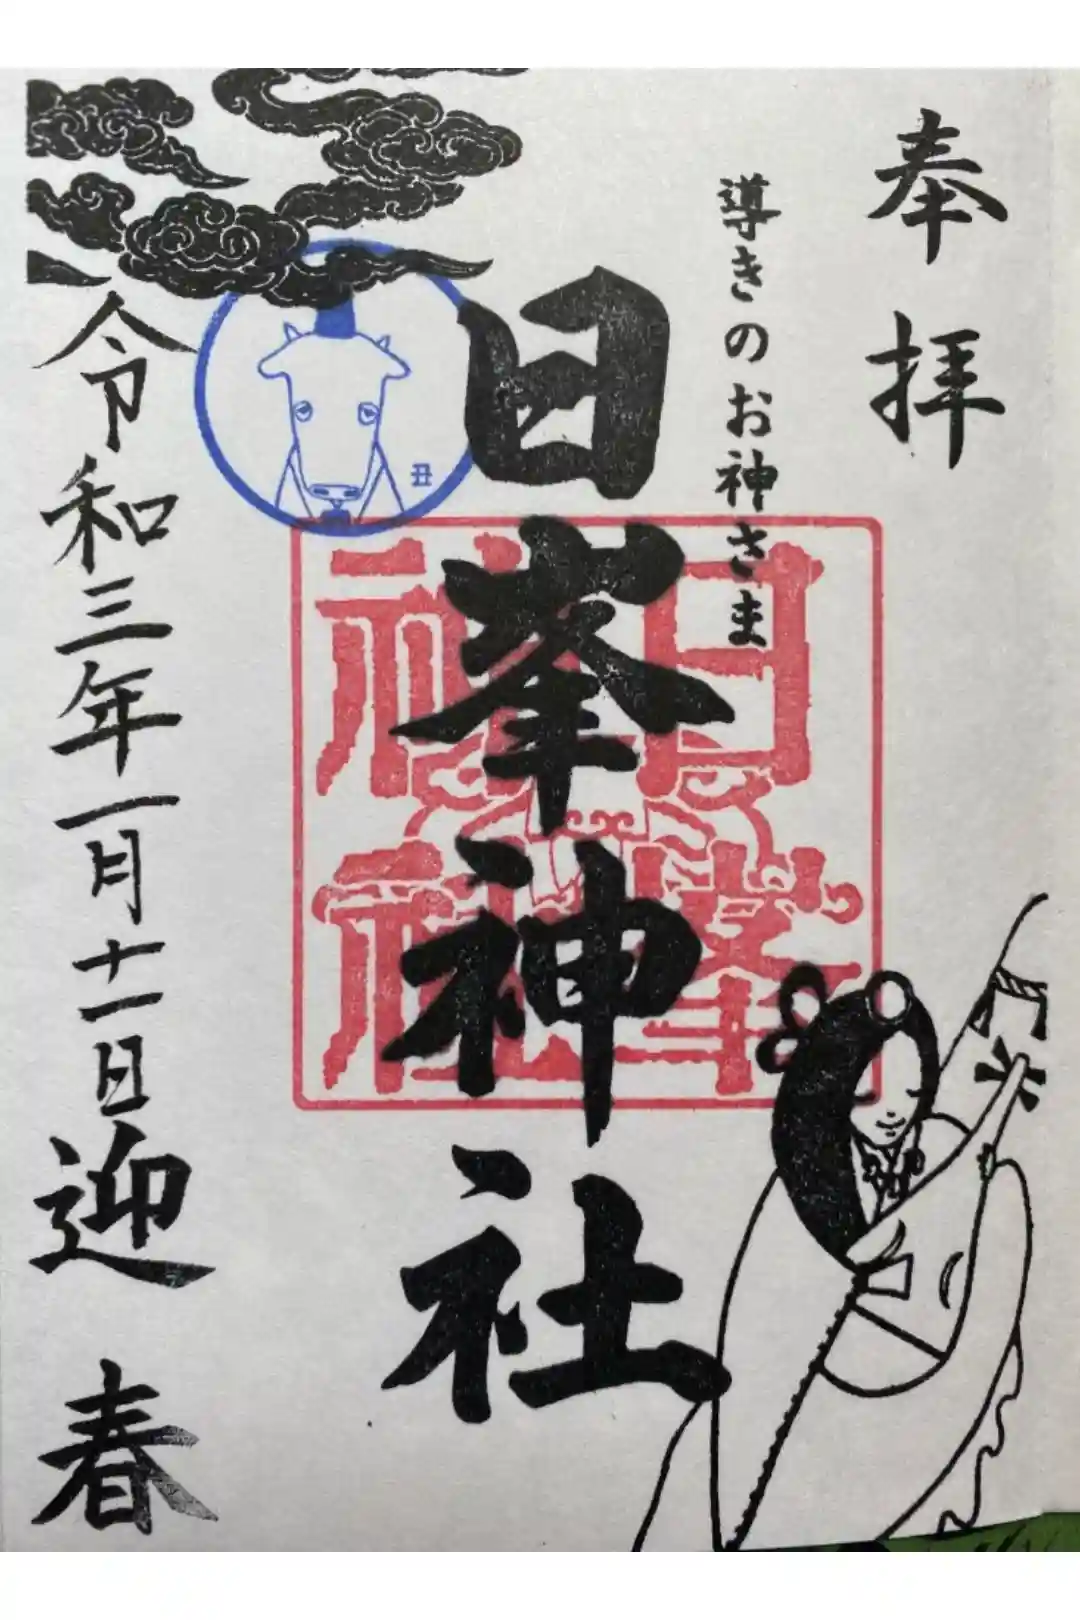 奉拝
導きのお神さま
日峯神社
日峯
神社
丑
令和三年一月十一日
迎春